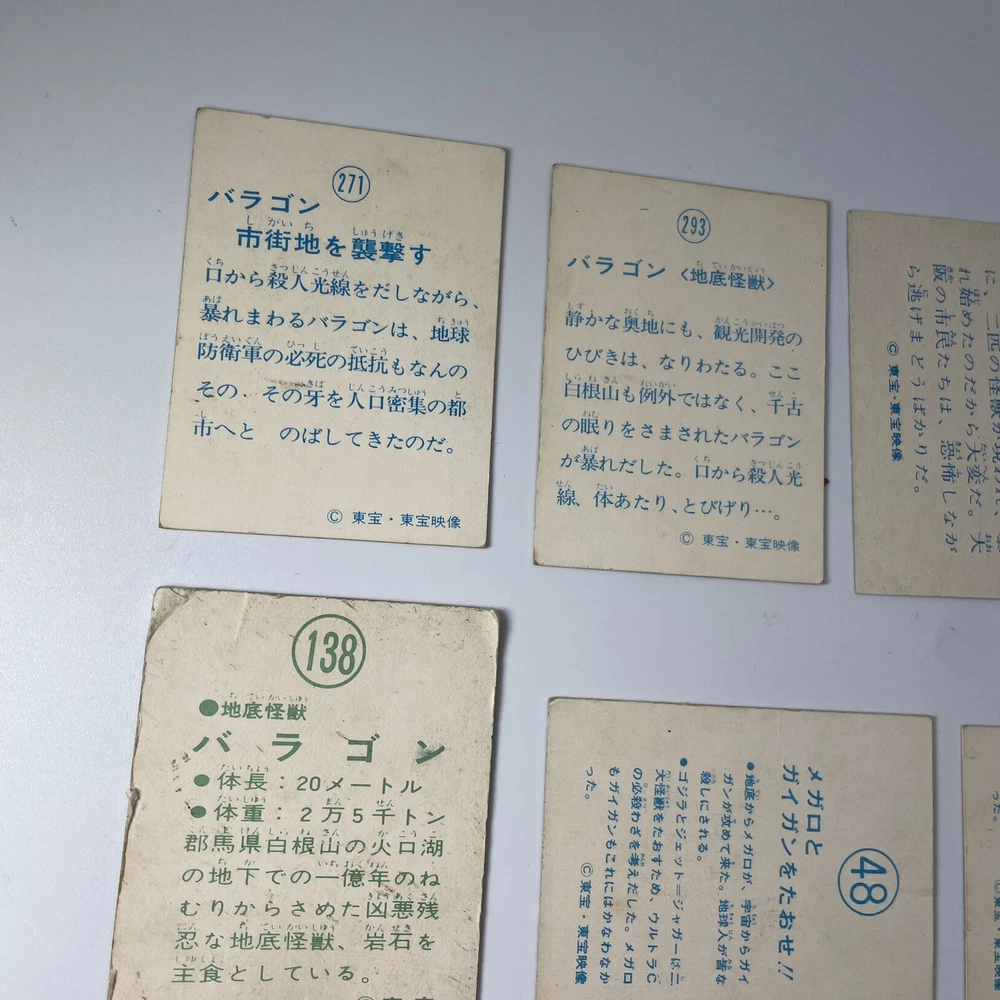 271
バラゴン
市街地を襲撃す
口から殺人光線をだしながら、
暴れまわるバラゴンは、地球
防衛軍の必死の抵抗もなんの
その、その牙を人口密集の都
市へと のばしてきたのだ。
© 東宝・東宝映像
293
バラゴン〈地底怪獣〉
静かな奥地にも、観光開発の
ひびきは、なりわたる。ここ
白根山も例外ではなく、千古
の眠りをさまされたバラゴン
が暴れだした。口から殺人光
線、体あたり、とびげり…。
© 東宝・東宝映像
に、三匹の怪獣が
れ始めたのだから大変だ。大
阪の市民たちは、恐怖しなが
ら逃げまどうばかりだ。
©東宝・東宝映像
138
●地底怪獣
バラゴン
●体長：20メートル
●体重：2万5千トン
郡馬県白根山の火口湖
の地下での一億年のね
むりからさめた凶悪残
忍な地底怪獣、岩石を
主食としている。
48
メガロと
ガイガンをたおせ!!
●地底からメガロが、宇宙からガイ
ガンが攻めて来た。地球人が皆な
殺しにされる。
●ゴジラとジェット＝ジャガーは二
大怪獣をたおすため、ウルトラC
の必殺わざを考えだした。メガロ
もガイガンもこれにはかなわなか
った。
©東宝・東宝映像
った。